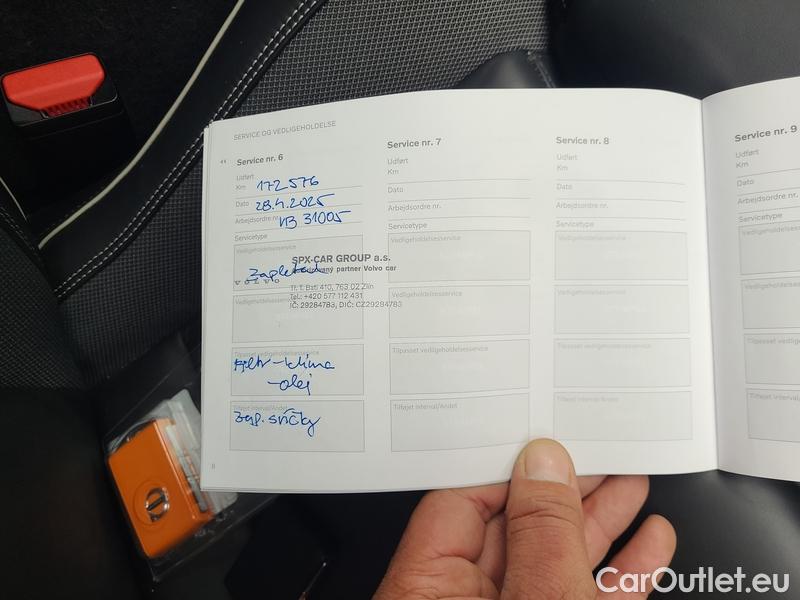 SERVICE OG VEDLIGEHOLDELSE
Service nr. 6
Udført
Km 172 576
Dato 28.4.2025
Arbejdsordre nr. VB 31005
Servicetype
Vedligeholdelsesservice
SPX-CAR GROUP a.s.
partner Volvo car
Tř. T. Bati 410, 763 02 Zlín
Tel.: +420 577 112 431
IČ: 29284783, DIČ: CZ29284783
Vedligeholdelsesservice
Tilpasset vedligeholdelsesservice
Filtr - klima
- olej
Tilføjet interval/Andet
Zap. svíčky
8
Service nr. 7
Udført
Km
Dato
Arbejdsordre nr.
Servicetype
Vedligeholdelsesservice
Vedligeholdelsesservice
Tilpasset vedligeholdelsesservice
Tilføjet interval/Andet
Service nr. 8
Udført
Km
Dato
Arbejdsordre nr.
Servicetype
Vedligeholdelsesservice
Vedligeholdelsesservice
Tilpasset vedligeholdelsesservice
Tilføjet interval/Andet
Service nr. 9
Udført
Km
Dato
Arbejdsordre
Servicetype
Vedligeholdelses
Vedligeholdelses
CarOutlet.eu